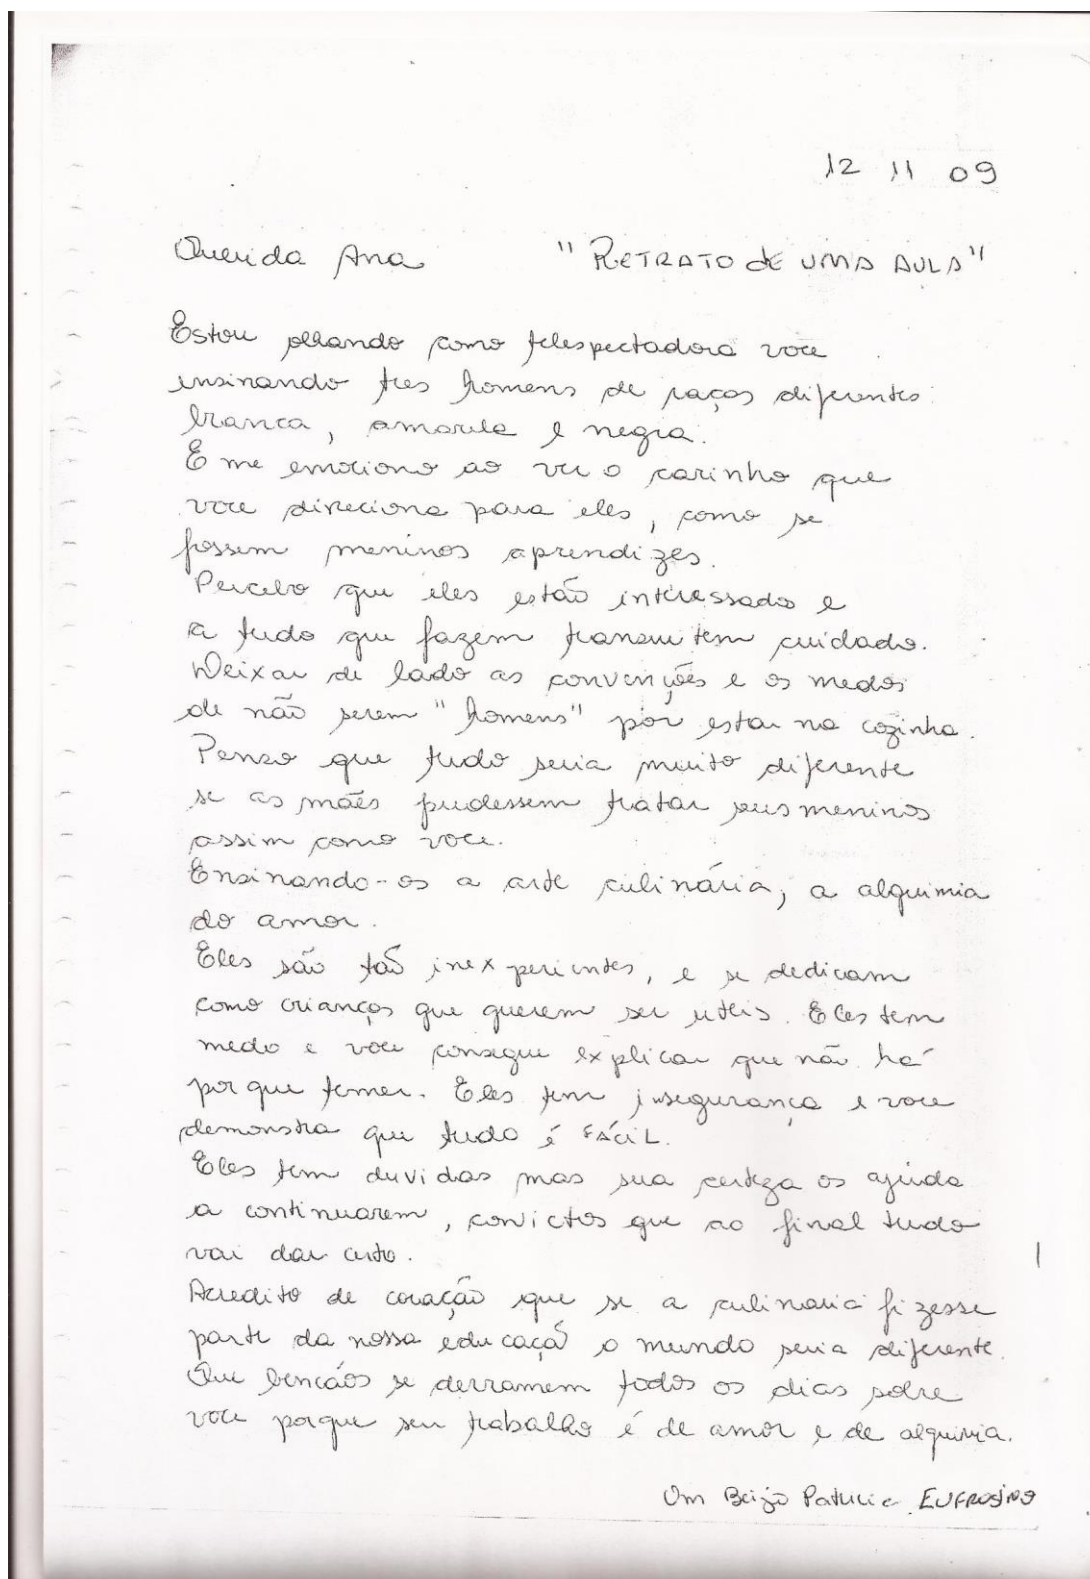 12 11 09
Querida Ana "RETRATO DE UMA AULA"
Estou olhando como telespectadora voce
ensinando tres homens de raças diferentes
branca, amarela e negra.
E me emociono ao ver o carinho que
voce direciona para eles, como se
fossem meninos aprendizes.
Percebo que eles estão interessados e
a tudo que fazem transmitem cuidado.
Deixar de lado as convenções e os medos
de não serem "homens" por estar na cozinha.
Penso que tudo seria muito diferente
se as mães pudessem tratar seus meninos
assim como voce.
Ensinando-os a arte culinária, a alquimia
do amor.
Eles são tão inexperientes, e se dedicam
como crianças que querem ser uteis. Eles tem
medo e voce consegue explicar que não há
por que temer. Eles tem insegurança e voce
demonstra que tudo é FÁCIL.
Eles tem duvidas mas sua certeza os ajuda
a continuarem, convictos que ao final tudo
vai dar certo.
Acredito de coração que se a culinaria fizesse
parte da nossa educaçã o mundo seria diferente.
Que bencãos se derramem todos os dias sobre
voce porque seu trabalho é de amor e de alquimia.
Um Beijo Patricia EUFROSINO